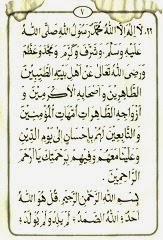 ١
٢٢ لَا اِلٰهَ اِلَّا اللهُ مُحَمَّدٌ رَسُولُ اللهِ صَلَّى اللهُ
عَلَيْهِ وَسَلَّمَ وَشَرَّفَ وَكَرَّمَ وَمَجَّدَ وَعَظَّمَ
وَرَضِىَ اللهُ تَعَالٰى عَنْ اَهْلِ بَيْتِهِ الطَّيِّبِيْنَ
الطَّاهِرِيْنَ وَاَصْحَابِهِ الْاَكْرَمِيْنَ وَ
اَزْوَاجِهِ الطَّاهِرَاتِ اُمَّهَاتِ الْمُؤْمِنِيْنَ
وَالتَّابِعِيْنَ لَهُمْ بِاِحْسَانٍ اِلٰى يَوْمِ الدِّيْنِ
وَعَلَيْنَا مَعَهُمْ وَفِيْهِمْ بِرَحْمَتِكَ يَا اَرْحَمَ
الرَّاحِمِيْنَ
بِسْمِ اللهِ الرَّحْمٰنِ الرَّحِيْمِ. قُلْ هُوَ اللهُ
اَحَدٌ؛ اَللهُ الصَّمَدُ؛ لَمْ يَلِدْ وَلَمْ يُولَدْ؛